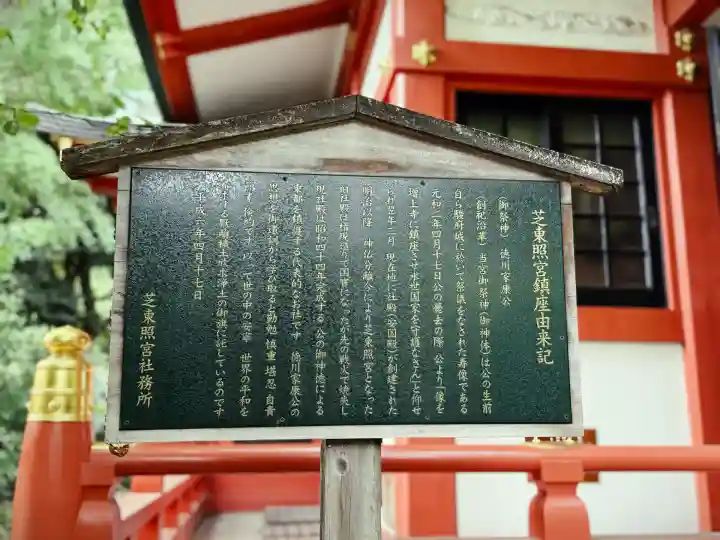 芝東照宮鎮座由来記
(御祭神) 徳川家康公
(創祀沿革) 当宮御祭神(御神体)は公の生前
自ら駿府城に於いて祭儀をなされた寿像である
元和二年四月十七日公の薨去の際 公より「像を
増上寺に鎮座させ永世国家を守護なさん」と仰せ
られ翌年二月 現在地に社殿(安国殿)が創建された
明治以降 神仏分離令により芝東照宮となった
旧社殿は権現造りで国宝となったが先の戦火で焼失し
現社殿は昭和四十四年完成する 公の御神徳による
東都を鎮護する代表的な名社です 徳川家康公の
思想を御遺訓に学び取ると勤勉 慎重 堪忍 自責
倹約です 以って世の中の安寧 世界の平和を
する 厭離穢土欣求浄土の御旗に託しているのです
平成 年四月十七日
芝東照宮社務所